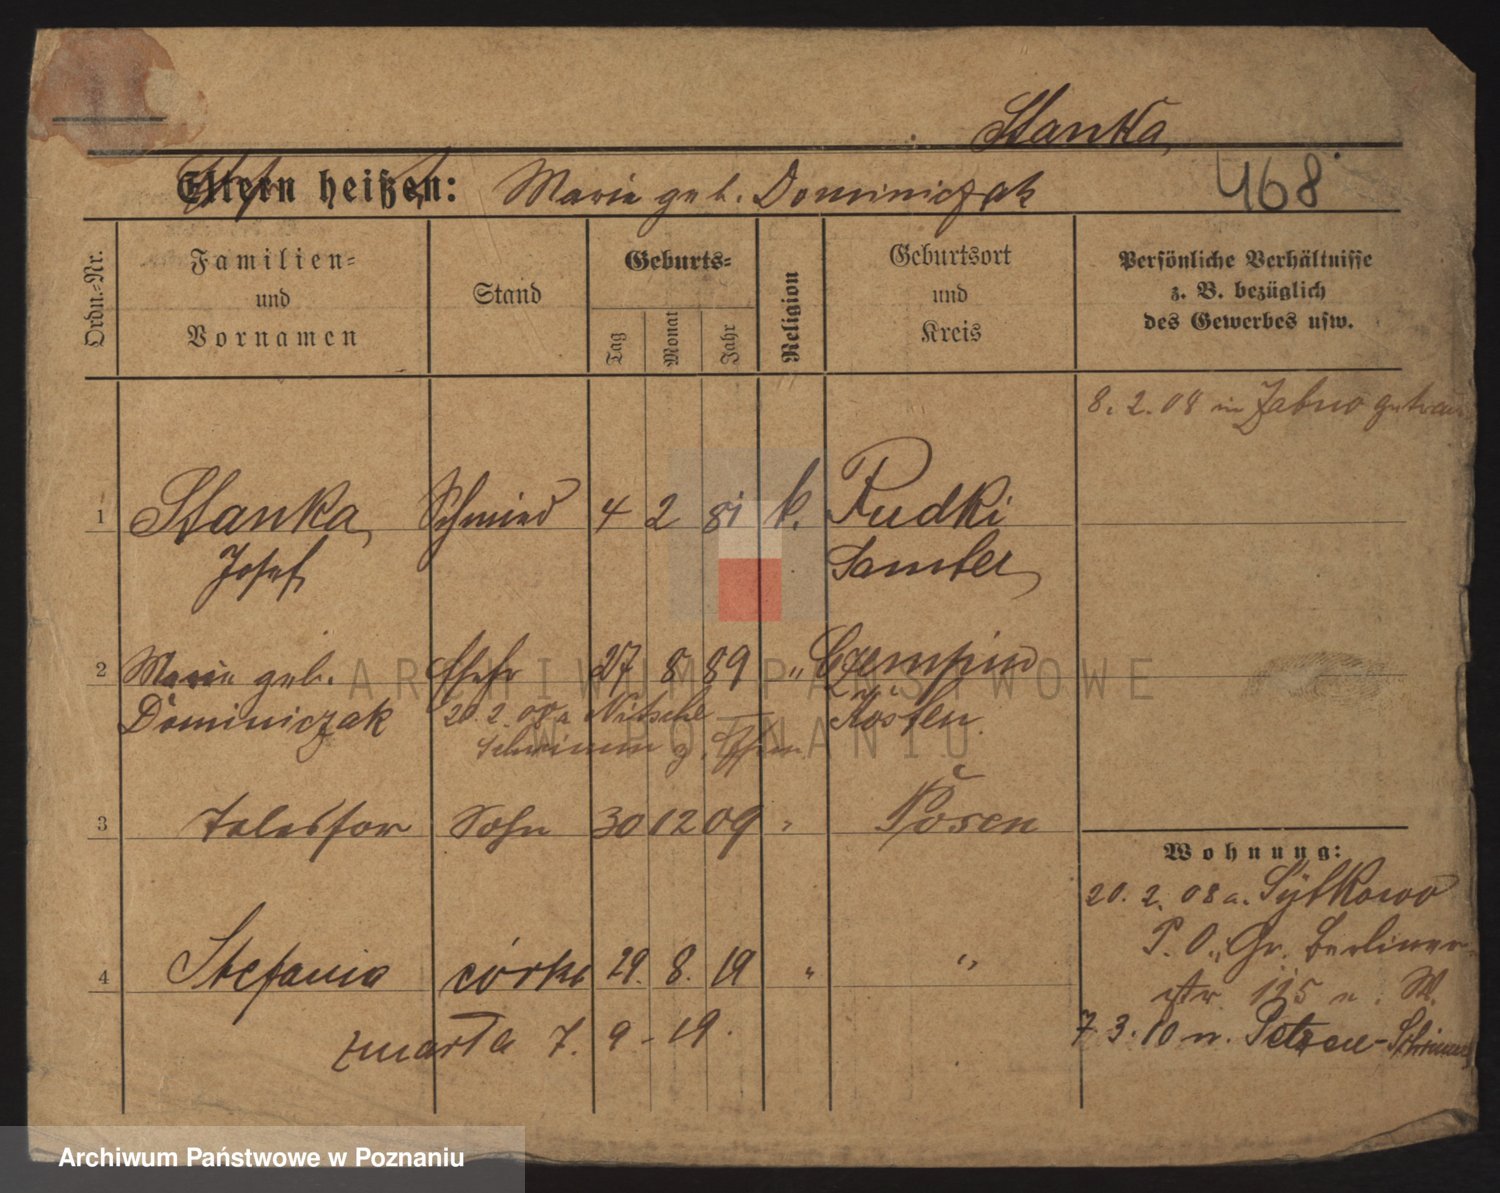 Stanka,
Eltern heißen: Marie geb. Dominiczak 468
Ordn.-Nr.
Familien-
und
Vornamen
Stand
Geburts-
Tag
Monat
Jahr
Religion
Geburtsort
und
Kreis
Persönliche Verhältnisse
z. B. bezüglich
des Gewerbes usw.
8. 2. 08 in Zabno getrau
1 Stanka, Schmied 4 2 81 k. Rudki
Josef Samter
2 Marie geb. Ehefr 27 8 89 " Czempin
Dominiczak 20. 2. 08 a Nitsche Kosten
3 Telesfor Sohn 30 12 09 " Posen
Wohnung:
20. 2. 08 a. Sytkowo
P. O., Gr. Berliner-
str. 115 n. W.
4 Stefania córka 29. 8. 19 " "
7. 3. 10 n. Petzen-Schrimm
zmarła 7. 9 - 19.
ARCHIWUM PAŃSTWOWE
W POZNANIU
Archiwum Państwowe w Poznaniu